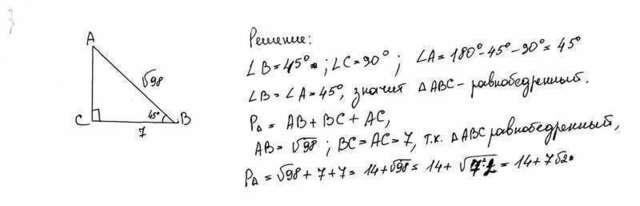 3
A
√98
C
45°
B
7
Решение:
∠B=45°; ∠C=90°; ∠A=180°-45°-90°=45°
∠B=∠A=45°, значит △ABC-равнобедренный.
P△ = AB + BC + AC,
AB=√98; BC=AC=7, т.к. △ABC равнобедренный,
P△=√98+7+7=14+√98=14+√7²·2=14+7√2